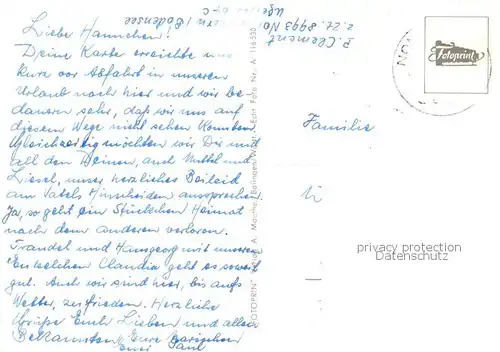 Liebe Hannchen!
Deine Karte erreichte uns
kurz vor Abfahrt in unseren
Urlaub nach hier und wir be-
dauern sehr, daß wir uns auf
diesem Wege nicht sehen konnten.
Gleichzeitig möchten wir Dir und
all den Deinen, auch Muttel und
Liesel, unser herzliches Beileid
am Vatels Hinscheiden aussprechen!
Ja, so geht ein Stückchen Heimat
nach dem anderen verloren.
Traudel und Hansgeorg mit unserem
Enkelchen Claudia geht es soweit
gut. Auch wir sind hier, bis aufs
Wetter, zufrieden. Herzliche
Grüße Euch Lieben und allen
Bekannten Eure
Euer Paul
P. Clement
z. Zt. 8993
Bodensee
FOTOPRINT Verlag A.
Foto Nr. A 116 530
Fotoprint
Familie
privacy protection
Datenschutz